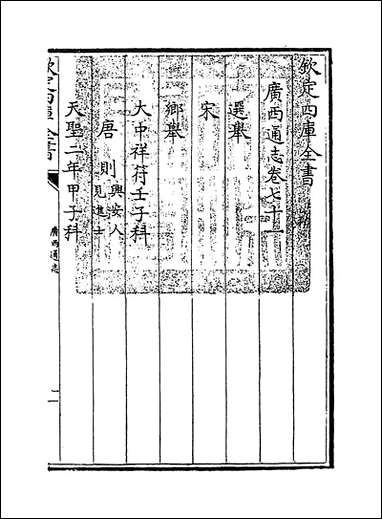 欽定四庫全書
廣西通志卷七十一
選舉
宋
鄉舉
大中祥符壬子科
唐則興安人見進士
天聖二年甲子科
欽定四庫全書
廣西通志